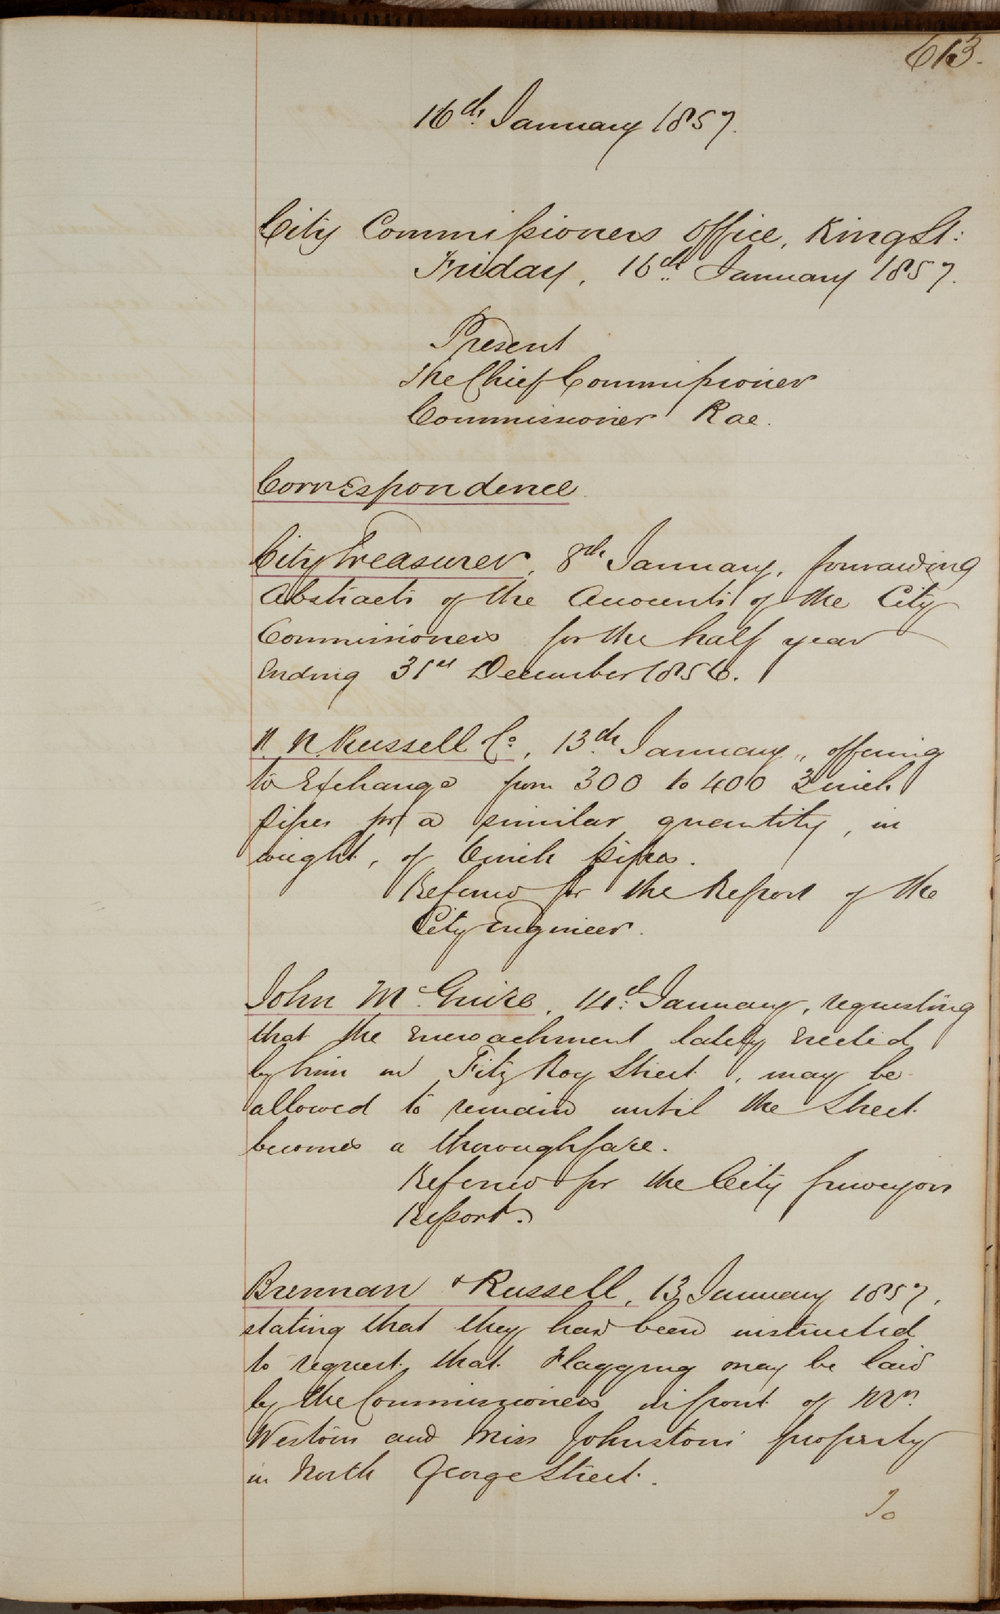 613.
16th January 1857.
City Commissioners Office, King St:
Friday, 16th January 1857.
Present
The Chief Commissioner
Commissioner Rae.
Correspondence
City Treasurer, 8th January, forwarding
Abstracts of the Accounts of the City
Commissioners for the half year
Ending 31st December 1856.
Russell & Co, 13th January, offering
to Exchange from 300 to 400 3 inch
pipes for a similar quantity, in
weight, of 6 inch pipes.
Referred for the Report of the
City Engineer.
John McGuire, 14th January, requesting
that the Encroachment lately Erected
by him in Fitz Roy Street, may be
allowed to remain until the Street
becomes a thoroughfare.
Referred for the City Surveyors
Report.
Brennan & Russell, 13 January 1857,
stating that they had been instructed
to request that Flagging may be laid
by the Commissioners in front of Mrs.
Weston's and Miss Johnston's property
in North George Street.
To